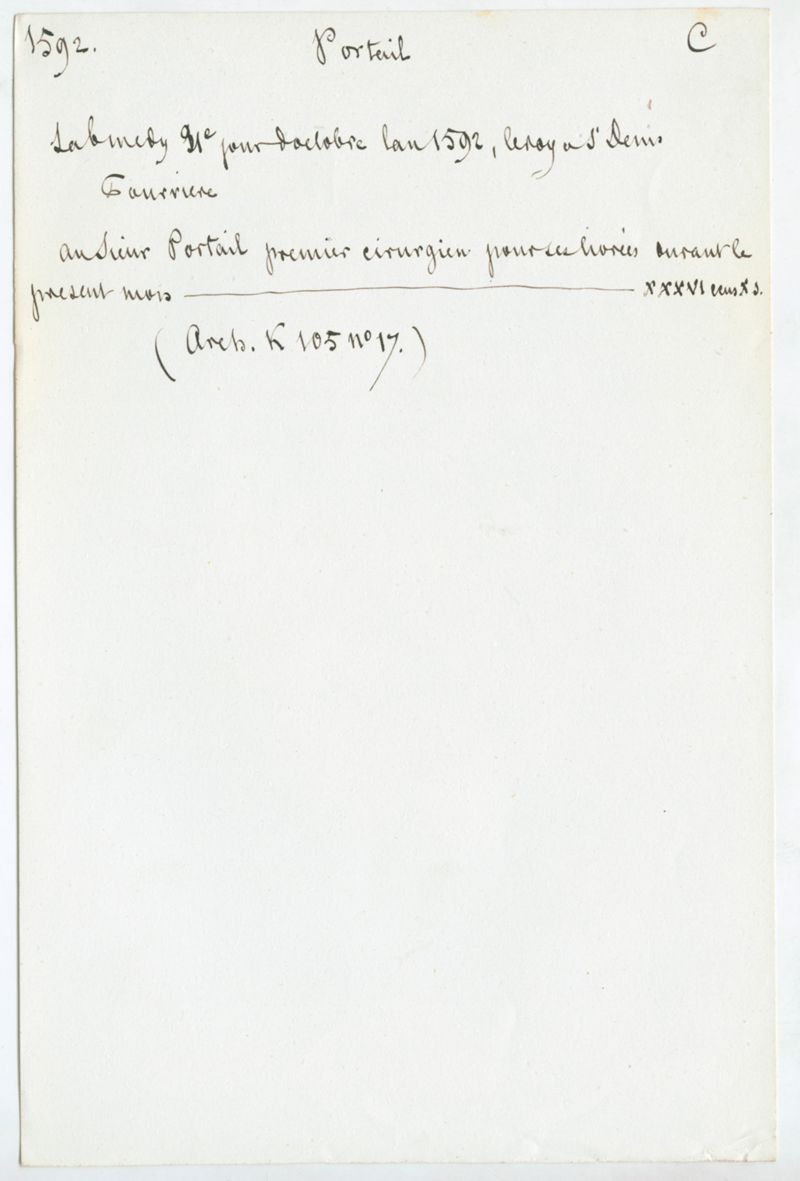 1592. Portail C
Sabmedy 31e jour doctobre lan 1592, le roy a St Denis
Fourriere
au Sieur Portail premier cirurgien pour ses livrées durant le
present mois ——— XXXVI ecus X s.
(Arch. K 105 no 17.)